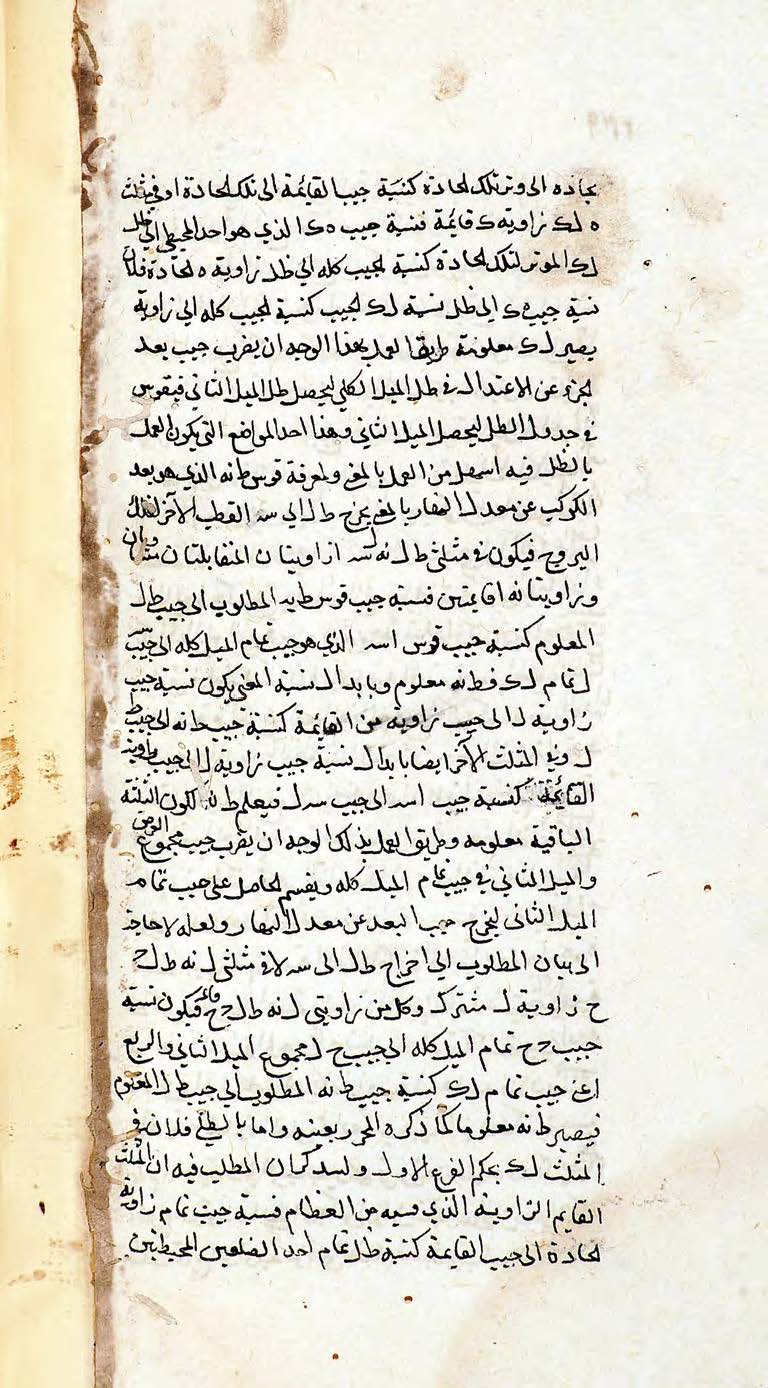 بحاده الى وتر تلك الحادة كنسبة جيب القايمة الى تلك الحادة او في مثلث
ه لـ ك زاوية ك قايمة فنسبة جيب ه ك الذي هو احد المحيطي الى ظل
لـ ك الموتر لتلك الحادة كنسبة الجيب كله الى ظل زاوية ه الحادة فلان
نسبة جيب ه ك الى ظل لـ ك كنسبة الجيب كله الى زاوية
يصير لـ ك معلومة طريق العمل بهذا الوجه ان يضرب جيب بعد
الجزء عن الاعتدال في ظل الميل الكلي ليحصل ظل الميل الثاني فيقوس
في جدول الظل ليحصل الميل الثاني وهذا احد المواضع التي يكون العمل
بالظل فيه اسهل من العمل بالمغني ولمعرفة قوس ط نه الذي هو بعد
الكوكب عن معدل النهار بالمغني يخرج ط ل الى سه القطب الآخر لفلك
البروج فيكون في مثلثي ط ل نه ا سه زاويتان المتقابلتان متساويتان
وزاويتا نه ا قايمتين فنسبة جيب قوس ط نه المطلوب الى جيب ط ل
المعلوم كنسبة جيب قوس ا سه الذي هو جيب تمام الميل كله الى جيب سه
ل تمام لـ ك فط نه معلوم وبابدال نسبة المغني يكون نسبة جيب
زاوية ل الى جيب زاوية نه القايمة كنسبة جيب ط نه الى جيب ط
ل وفي المثلث الآخر ايضا بابدال نسبة جيب زاوية ل الى جيب زاوية
القايمة كنسبة جيب ا سه الى جيب سه ل فيعلم ط نه لكون الثلثة
الباقية معلومه وطريق العمل بذلك الوجه ان يضرب جيب مجموع العرض
والميل الثاني في جيب تمام الميل كله ويقسم الحاصل على جيب تمام
الميل الثاني ليخرج جيب البعد عن معدل النهار ولعله لا حاجة
الى بيان المطلوب الى اخراج ط ل الى سه لان في مثلثي ل نه ط ل ح
ح زاوية ل مشترك وكل من زاويتي ل نه ط ل ح ح قائمة فيكون نسبة
جيب ح ح تمام الميل كله الى جيب ح ل مجموع الميل الثاني والربع
اعني جيب تمام لـ ك كنسبة جيب ط نه المطلوب الى جيب ط ل المعلوم
فيصير ط نه معلوما كما ذكره المحرر بعينه واما بالظلي فلان في
المثلث لـ ك بحكم الفرع الاول المطلب فيه ان المثلث
القايم الزاوية الذي قسيه من العظام فنسبة جيب تمام زاوية
الحادة الى جيب القايمة كنسبة ظل تمام احد الضلعين المحيطين